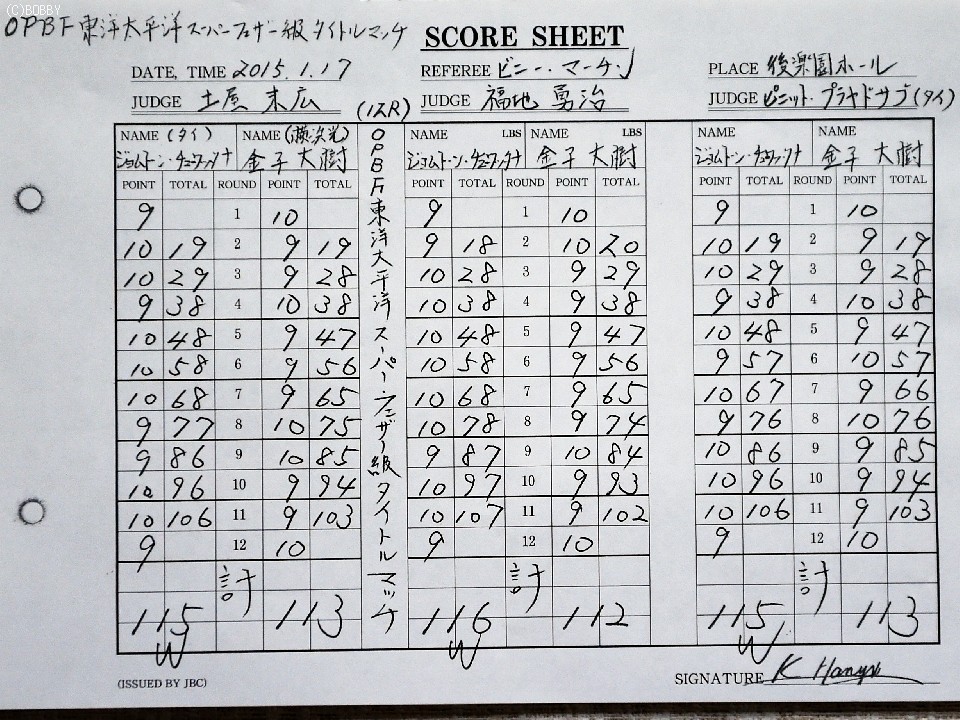 (C)BOBBY
OPBF東洋太平洋スーパーフェザー級タイトルマッチ SCORE SHEET
DATE, TIME 2015.1.17 REFEREE ビニー・マーチン PLACE 後楽園ホール
JUDGE 土屋 末広 (12R) JUDGE 福地 勇治 JUDGE ピニット・プラヤドサブ(タイ)
NAME (タイ) NAME NAME LBS NAME LBS NAME NAME
ジョムトーン・チューワッタナ 金子 大樹 ジョムトーン・チューワッタナ 金子 大樹 ジョムトーン・チューワッタナ 金子 大樹
POINT TOTAL ROUND POINT TOTAL POINT TOTAL ROUND POINT TOTAL POINT TOTAL ROUND POINT TOTAL
9 1 10 9 1 10 9 1 10
10 19 2 9 19 9 18 2 10 20 10 19 2 9 19
10 29 3 9 28 10 28 3 9 29 10 29 3 9 28
9 38 4 10 38 10 38 4 9 38 9 38 4 10 38
10 48 5 9 47 10 48 5 9 47 10 48 5 9 47
10 58 6 9 56 10 58 6 9 56 9 57 6 10 57
10 68 7 9 65 10 68 7 9 65 10 67 7 9 66
9 77 8 10 75 10 78 8 9 74 9 76 8 10 76
9 86 9 10 85 9 87 9 10 84 10 86 9 9 85
10 96 10 9 94 10 97 10 9 93 10 96 10 9 94
10 106 11 9 103 10 107 11 9 102 10 106 11 9 103
9 12 10 9 12 10 9 12 10
計 計 計
115 113 116 112 115 113
W W W
OPBF東洋太平洋スーパーフェザー級タイトルマッチ
(ISSUED BY JBC) SIGNATURE K